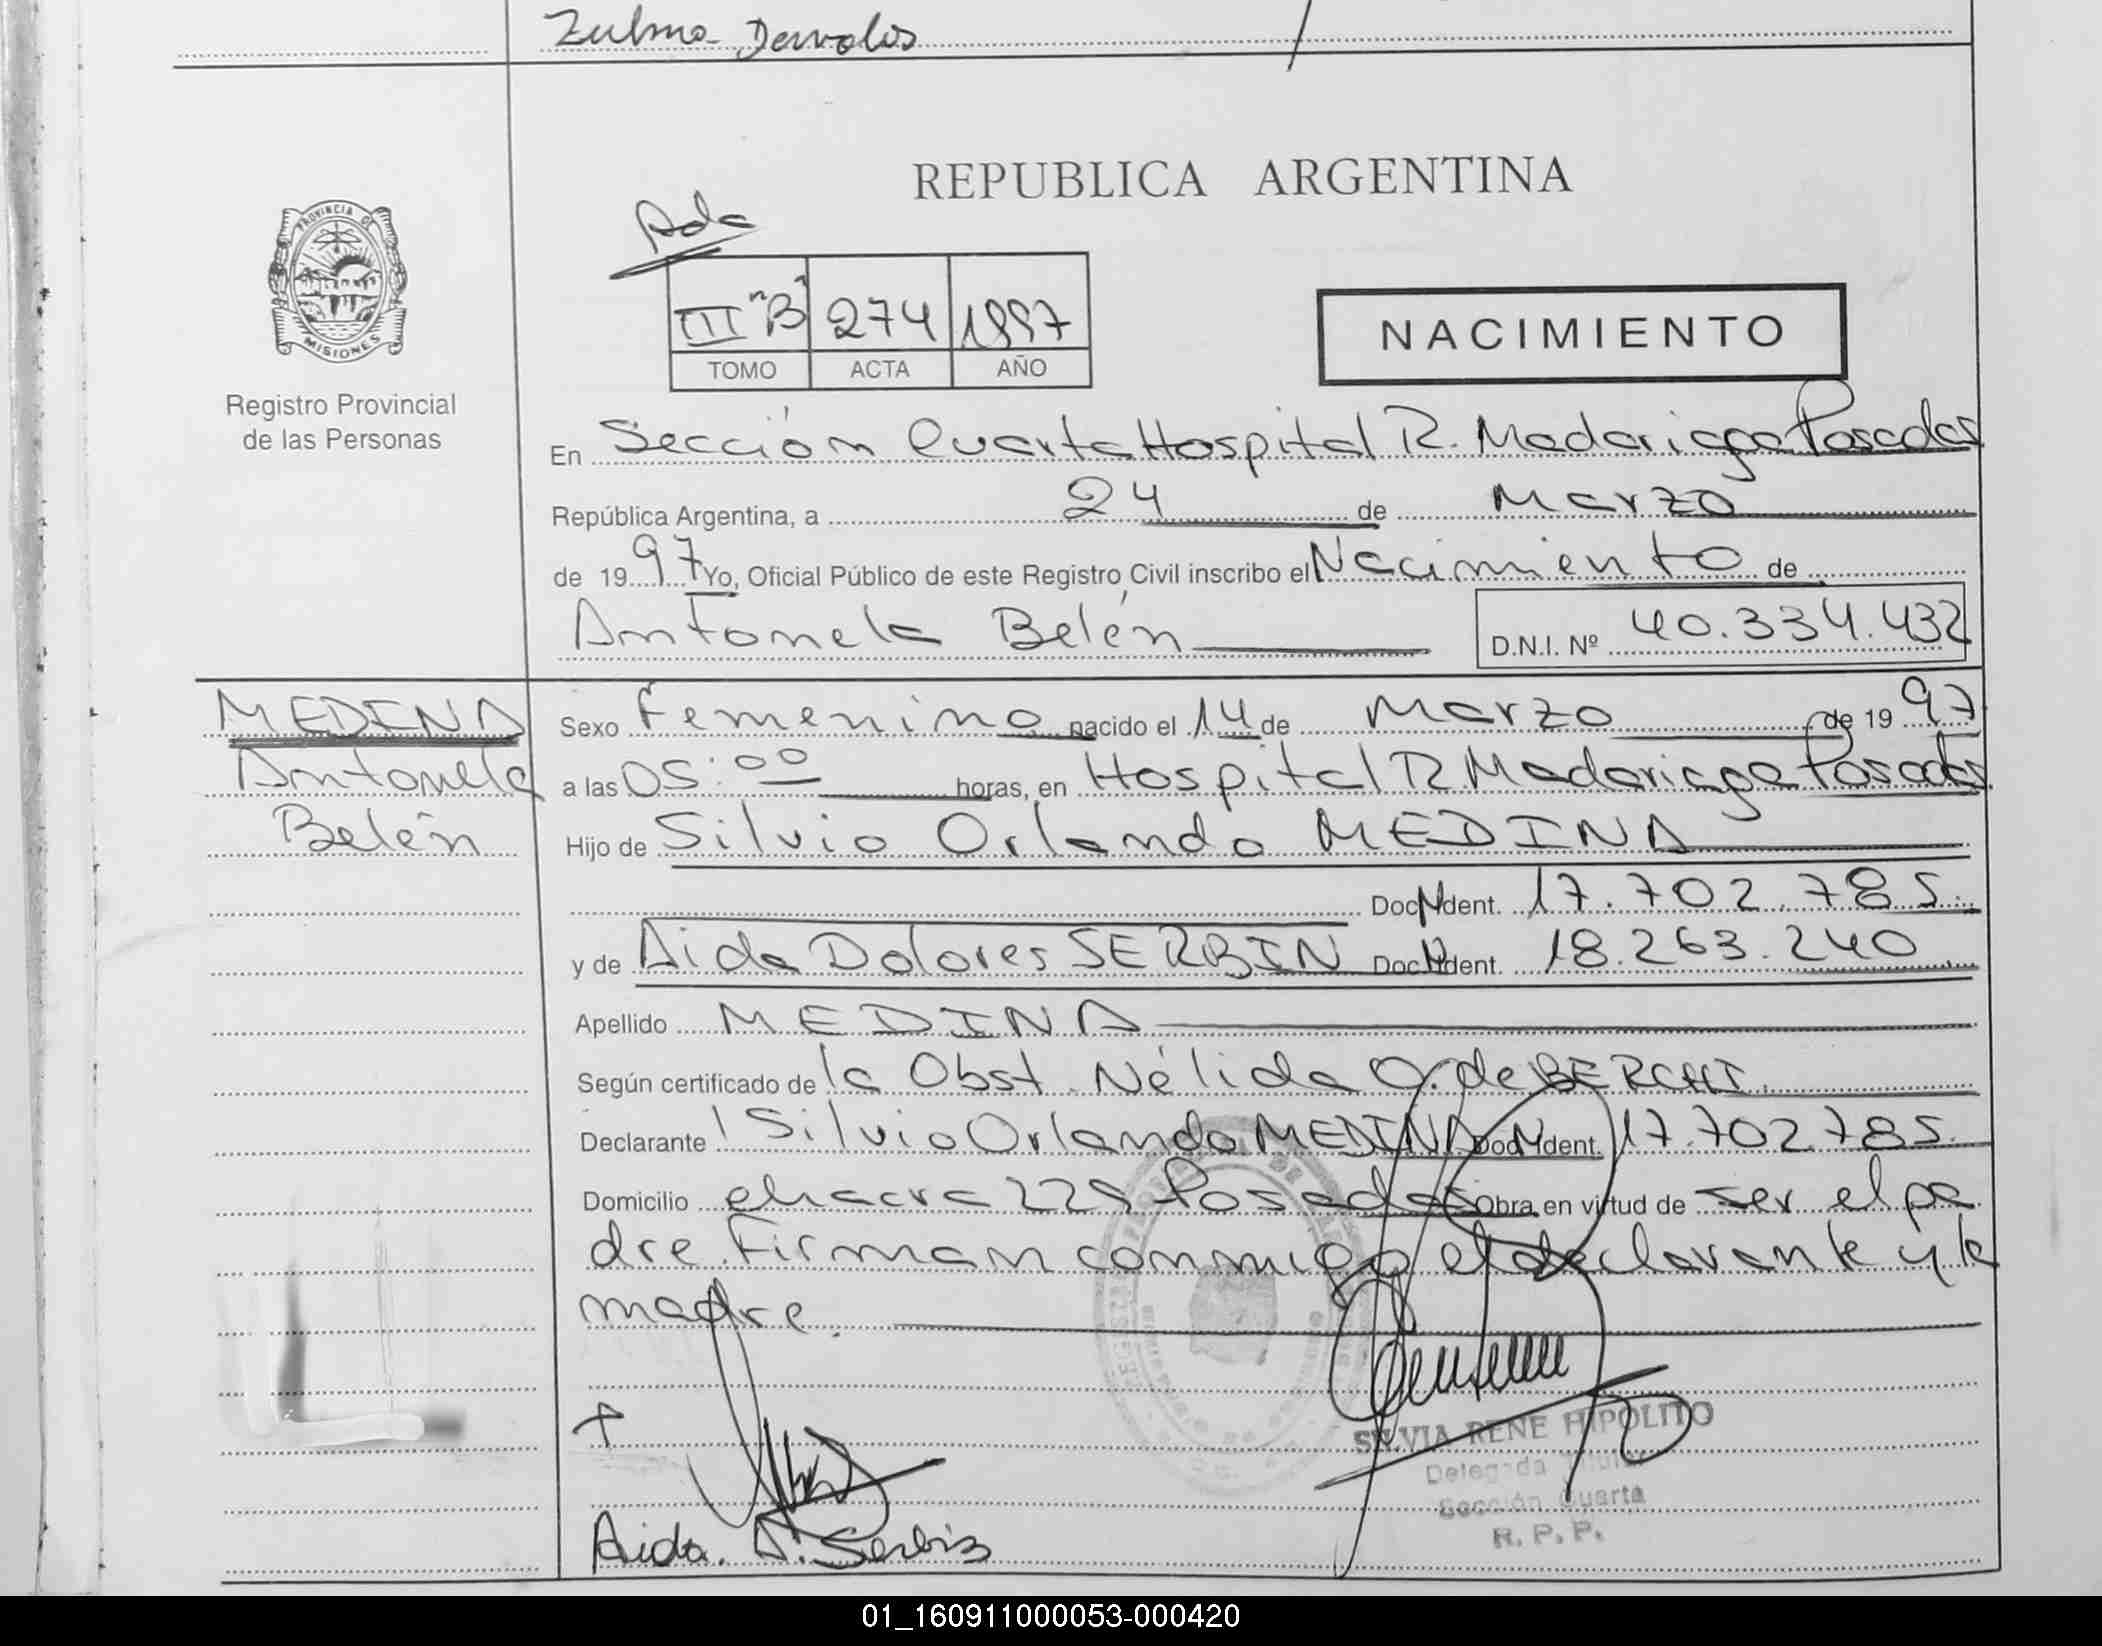 Zulma Davalos
REPUBLICA ARGENTINA
PROVINCIA DE
MISIONES
Registro Provincial
de las Personas
III "B" 274 1997
TOMO ACTA AÑO
NACIMIENTO
En Sección Cuarta Hospital R. Madariaga Posadas
República Argentina, a 24 de Marzo
de 1997 Yo, Oficial Público de este Registro Civil inscribo el Nacimiento de
Antonela Belén D.N.I. Nº 40.334.432
MEDINA
Antonela
Belén
Sexo Femenino nacido el 14 de Marzo de 1997
a las 05:00 horas, en Hospital R. Madariaga Posadas
Hijo de Silvio Orlando MEDINA
Doc. Ident. 17.702.785.
y de Aida Dolores SERBIN Doc. Ident. 18.263.240
Apellido MEDINA
Según certificado de la Obst. Nélida O. de BERCHI.
Declarante Silvio Orlando MEDINA Doc. Ident. 17.702.785.
Domicilio chacra 229 Posadas Obra en virtud de ser el pa
dre. Firman conmigo el declarante y la
madre.
SILVIA RENE HIPOLITO
Delegada Titular
Sección Cuarta
R. P. P.
Aida. D. Serbin
01_160911000053-000420